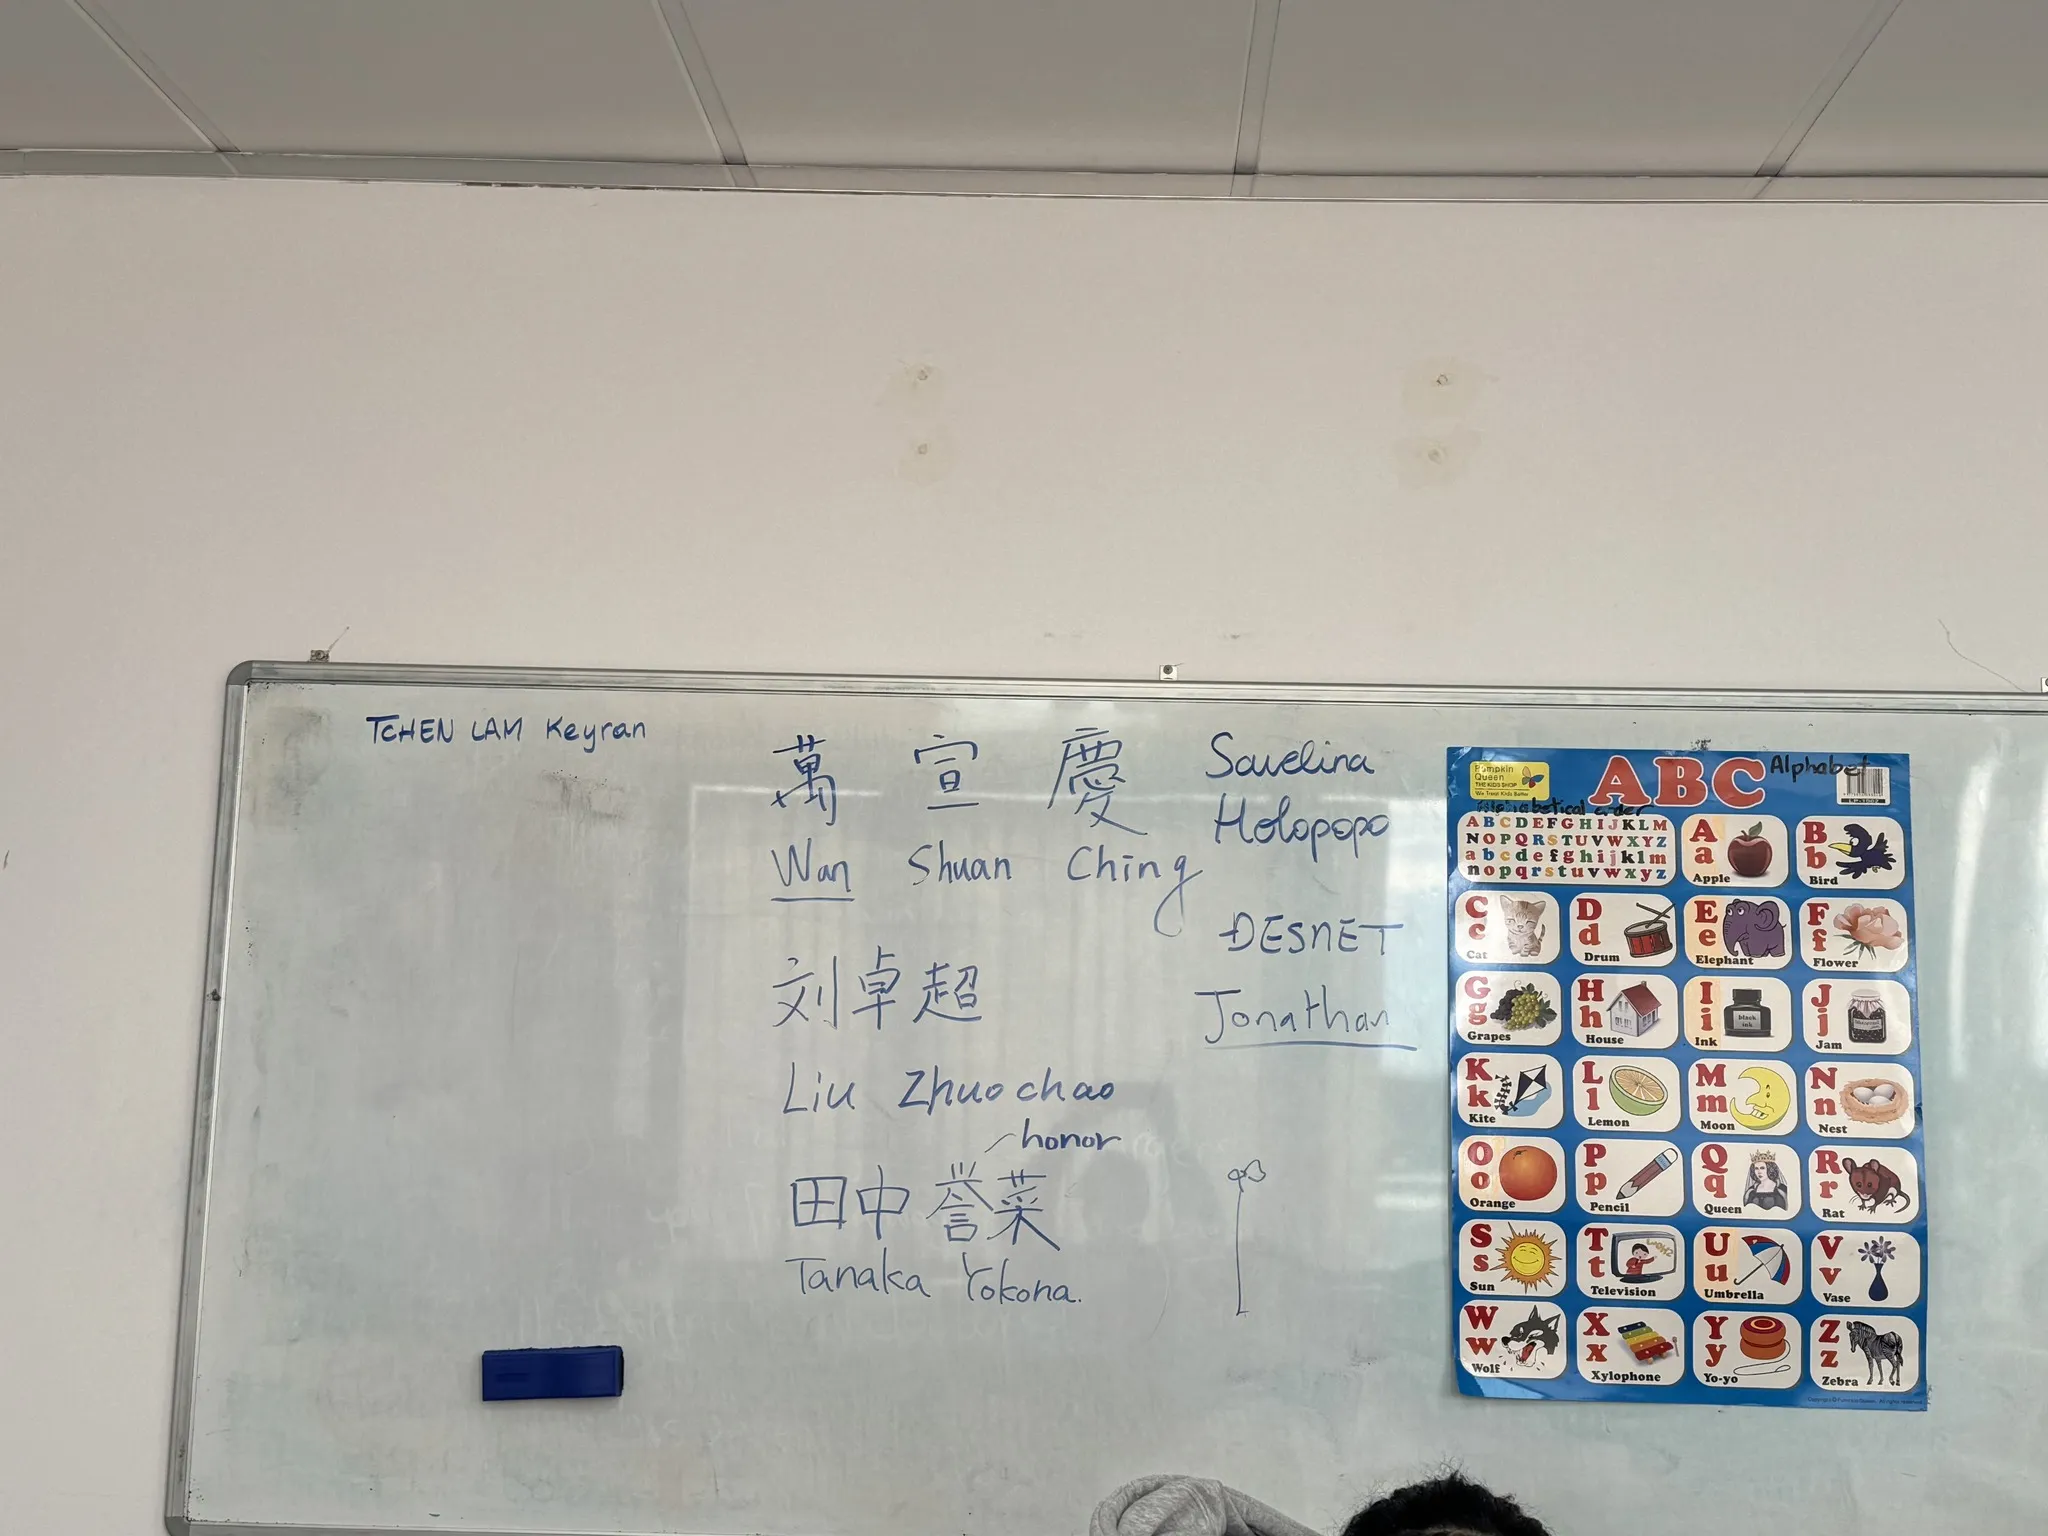 TCHEN LAM Keyran
萬 宣 慶
Wan Shuan Ching
刘卓超
Liu Zhuochao
honor
田中 誉菜
Tanaka Yokona.
Savelina
Holopopo
DESNET
Jonathan
Pumpkin
Queen
THE KIDS SHOP
We Treat Kids Better
ABC
Alphabet
Alphabetical order
A B C D E F G H I J K L M
N O P Q R S T U V W X Y Z
a b c d e f g h i j k l m
n o p q r s t u v w x y z
A a Apple
B b Bird
C c Cat
D d Drum
E e Elephant
F f Flower
G g Grapes
H h House
I i black ink Ink
J j Jam
K k Kite
L l Lemon
M m Moon
N n Nest
O o Orange
P p Pencil
Q q Queen
R r Rat
S s Sun
T t Television
U u Umbrella
V v Vase
W w Wolf
X x Xylophone
Y y Yo-yo
Z z Zebra